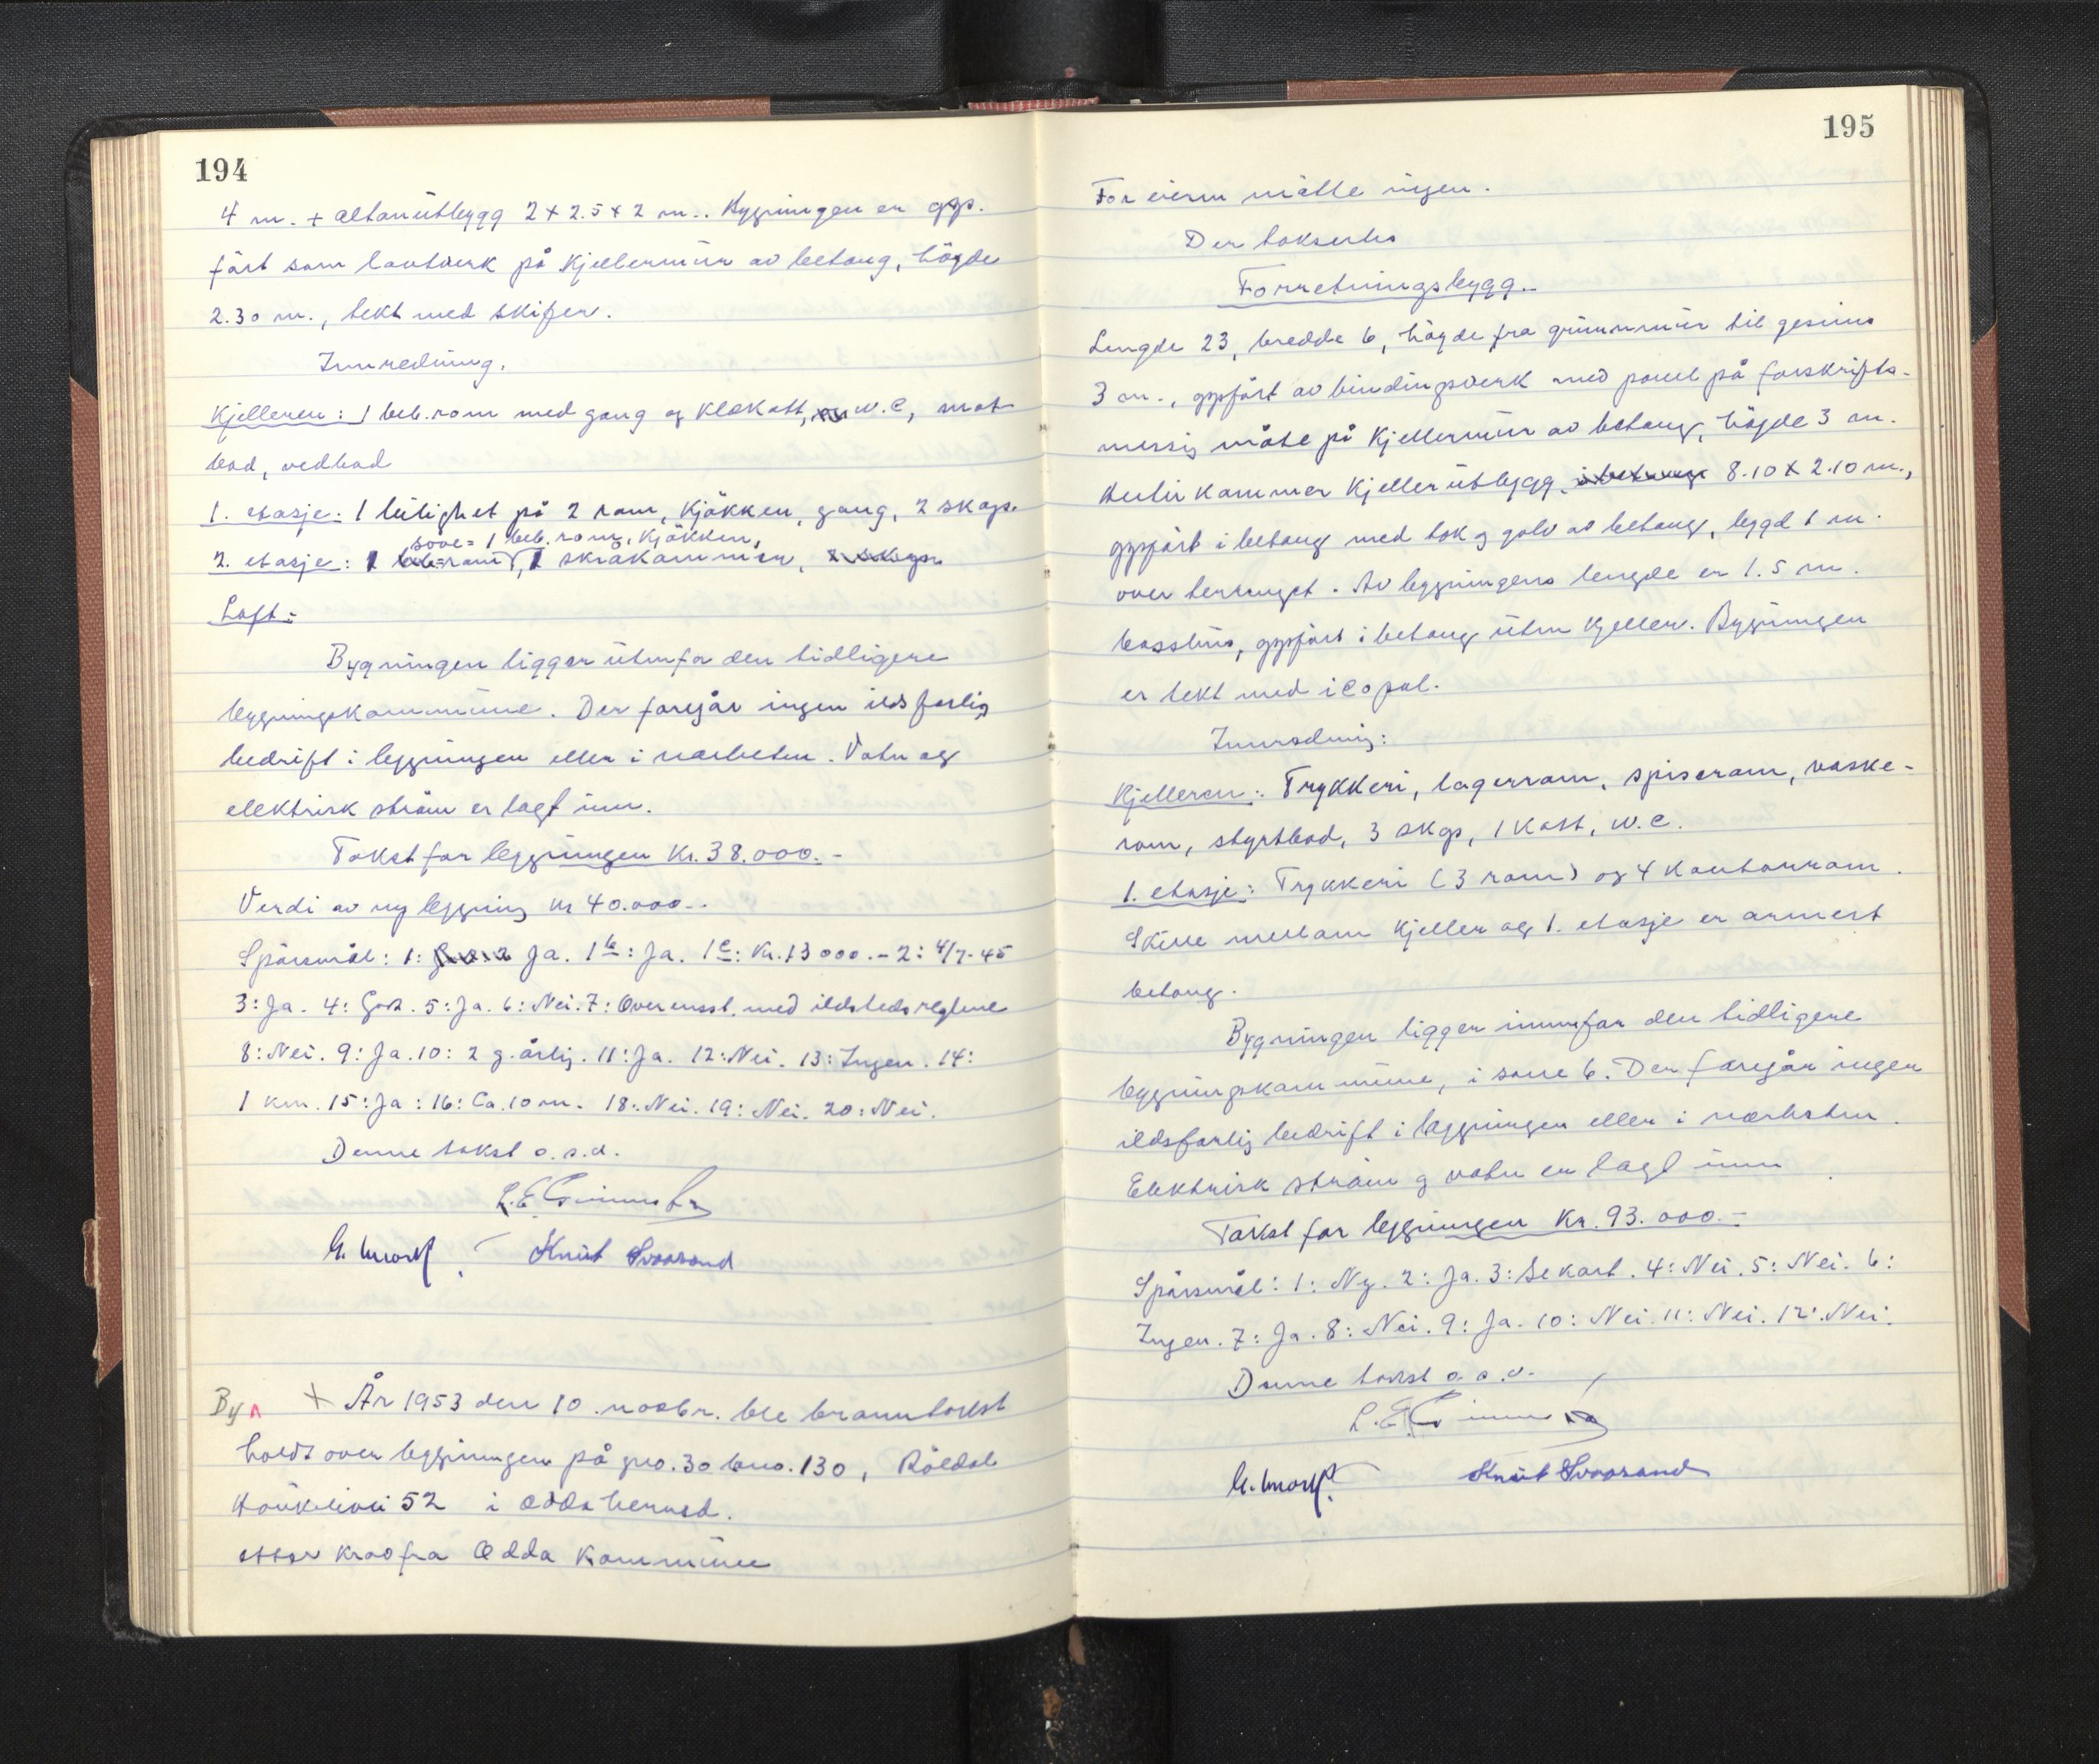 194
4 m. + altanutbygg 2 x 2.5 x 2 m.. Bygningen er opp-
ført som laftverk på kjellermur av betong, høgde
2.30 m., tekt med skifer.
Innredning.
Kjelleren: 1 beb.rom med gang og klekott, W.C, mat
bod, vedbod
1. etasje: 1 leilighet på 2 rom, kjøkken, gang, 2 skap.
sove= 1 beb. rom, kjøkken,
2. etasje: 1 rom, 1 skråkammer, 2 skap
Loft:
Bygningen ligger utenfor den tidligere
bygningskommune. Der foregår ingen ildsfarlig
bedrift i bygningen eller i nærheten. Vatn og
elektrisk strøm er lagt inn.
Takst for bygningen Kr. 38.000.-
Verdi av ny bygning kr 40.000.-
Spørsmål: 1: Ja. 1b: Ja. 1c: Kr. 13000.- 2: 4/7-45
3: Ja. 4: God. 5: Ja. 6: Nei. 7: Overensst. med ildstedsreglene
8: Nei. 9: Ja. 10: 2 g. årlig. 11: Ja. 12: Nei. 13: Ingen. 14:
1 km. 15: Ja: 16: Ca. 10 m. 18: Nei. 19: Nei. 20: Nei.
Denne takst o.s.v.
G. Mork. Knut Svoosand
By + År 1953 den 10. novbr. ble branntakst
holdt over bygningen på gno. 30 bno. 130, Røldal
Haukelivei 52 i Odda herred.
etter krav fra Odda kommune
195
For eieren møtte ingen.
Der taksertes
Forretningsbygg.
Lengde 23, bredde 6, høgde fra grunnmur til gesims
3 m., oppført av bindingsverk med panel på forskrifts-
messig måte på kjellermur av betong, høgde 3 m.
Hertil kommer kjellerutbygg, i betong 8.10 x 2.10 m.,
oppført i betong med tak og golv av betong, bygd 1 m.
over terrenget. Av bygningens lengde er 1.5 m.
bosshus, oppført i betong uten kjeller. Bygningen
er tekt med icopal.
Innredning:
Kjelleren: Trykkeri, lagerrom, spiserom, vaske-
rom, styrtbad, 3 skap, 1 kott, W.C.
1. etasje: Trykkeri (3 rom) og 4 kontorrom.
Skille mellom kjeller og 1. etasje er armert
betong.
Bygningen ligger innenfor den tidligere
bygningskommune, i sone 6. Der foregår ingen
ildsfarlig bedrift i bygningen eller i nærheten.
Elektrisk strøm og vatn er lagt inn.
Takst for bygningen Kr. 93.000.-
Spørsmål: 1: Ny. 2: Ja. 3: Se kart. 4: Nei. 5: Nei. 6:
Ingen. 7: Ja. 8: Nei. 9: Ja. 10: Nei. 11: Nei. 12: Nei.
Denne takst o.s.v.
G. Mork. Knut Svoosand